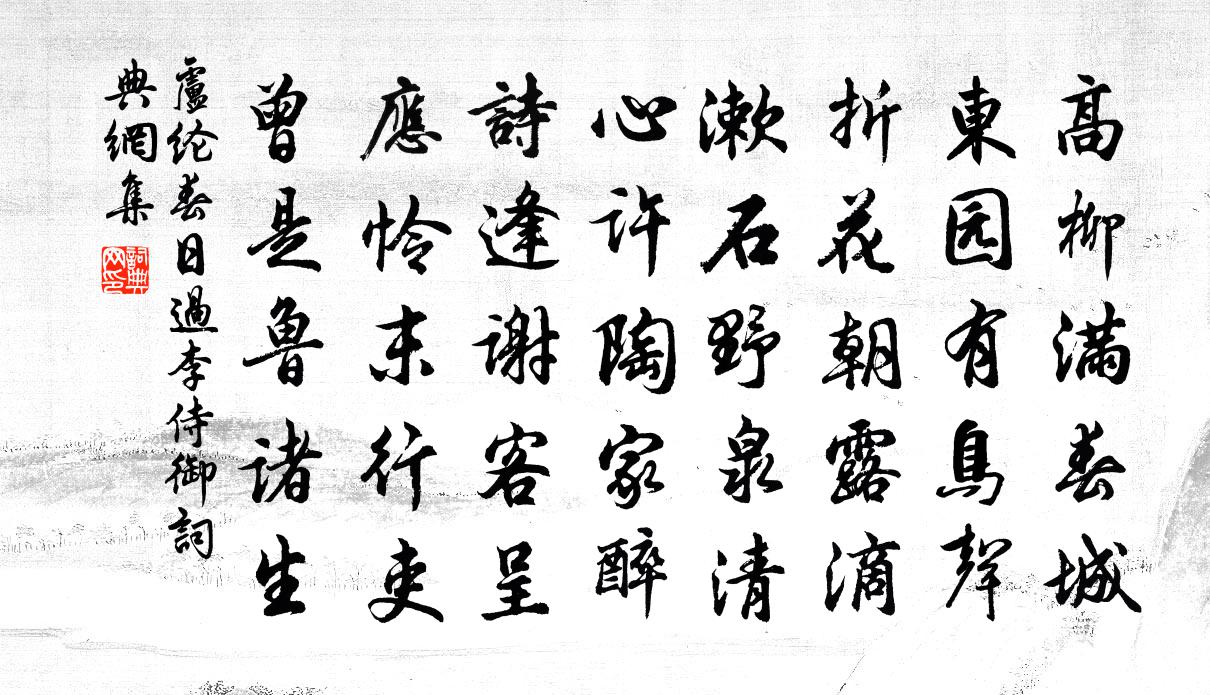 高柳满春城
東园有鳥聲
折花朝露滴
漱石野泉清
心許陶家醉
詩逢谢客呈
應怜末行吏
曾是魯諸生
盧纶春日過李侍御詞
典網集
詞典网印